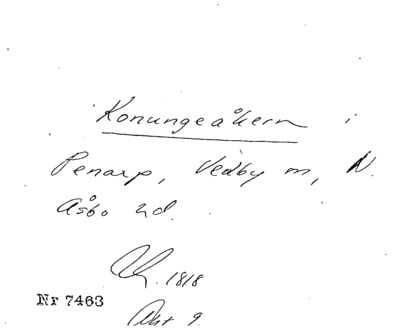 Konungeåkern i
Penarp, Vedby m, N.
Åsbo hd.
1818
Nr 7463
Akt 9.